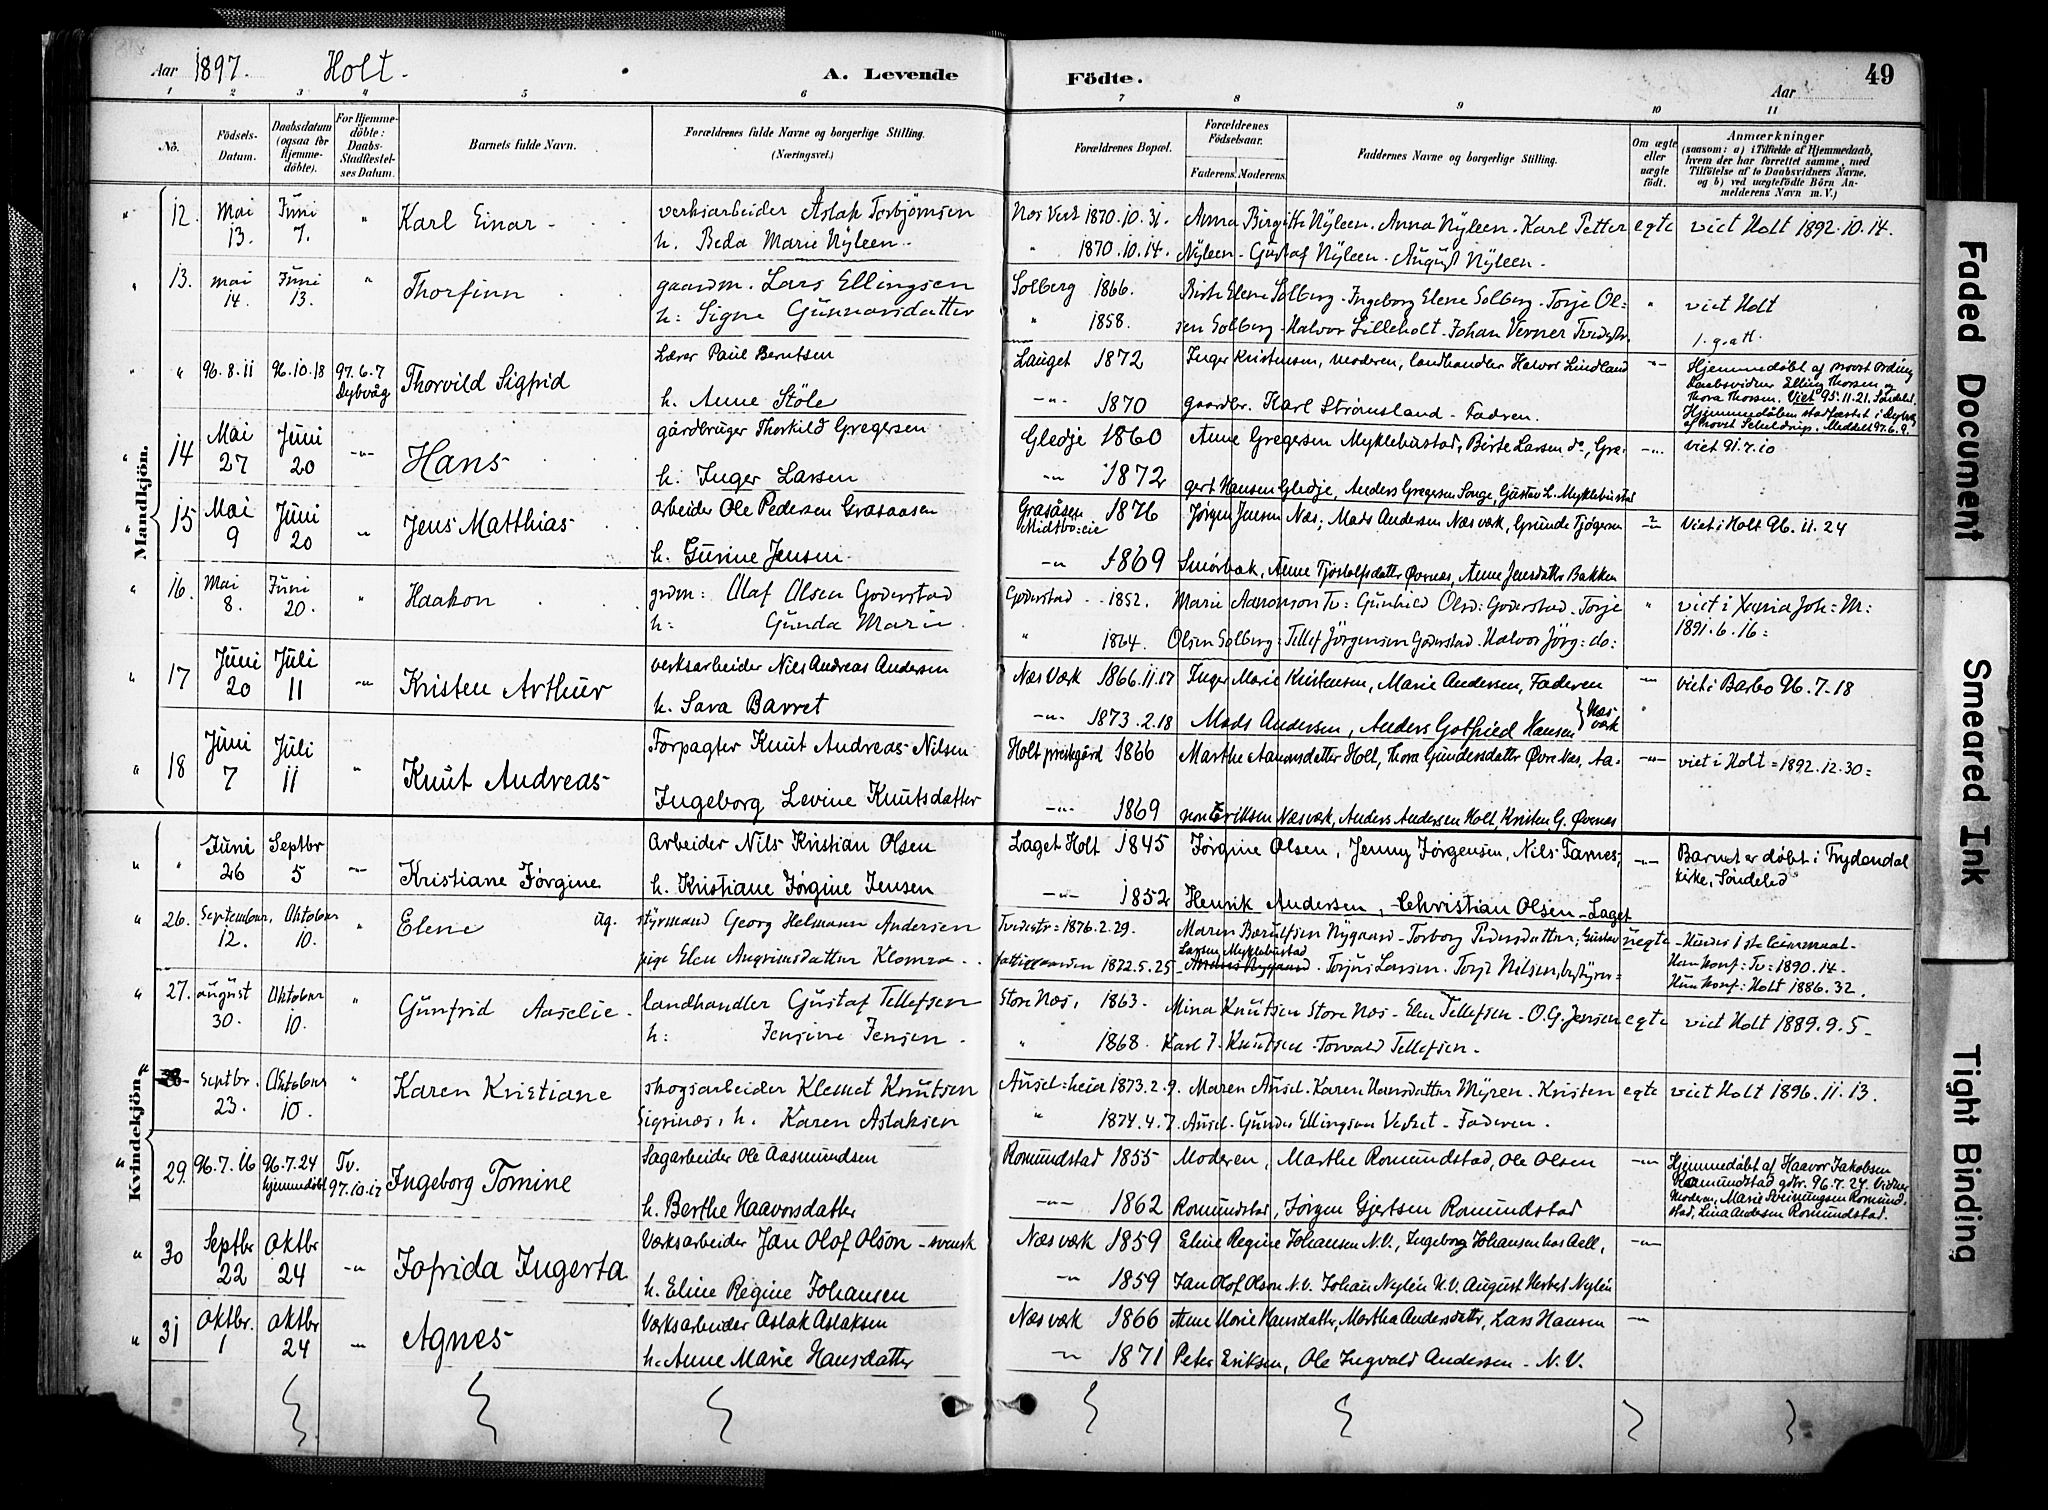 Aar 1897. Holt. A. Levende Födte. Aar 49
1 2 3 4 5 6 7 8 9 10 11
No. Födsels-Datum. Daabsdatum (ogsaa for Hjemmedöbte). For Hjemmedöbte: Daabs-Stadfæstelses Datum. Barnets fulde Navn. Forældrenes fulde Navne og borgerlige Stilling. (Næringsvei.) Forældrenes Bopæl. Forældrenes Födselsaar. Faderens. Moderens. Faddernes Navne og borgerlige Stilling. Om ægte eller uægte födt. Anmærkninger (saasom: a) i Tilfælde af Hjemmedaab, hvem der har forrettet samme, med Tilföielse af to Daabsvidners Navne, og b) ved uægtefödte Börn Anmelderens Navn m. V.)
Mandkjön.
12. Mai 13. Juni 7. " Karl Einar - verksarbeider Aslak Torbjørnsen Nes Verk 1870.10.31. Anna Birgitte Nyleen. Anna Nyleen. Karl Petter egte viet Holt 1892.10.14.
h. Beda Marie Nyleen. " 1870.10.14. Nyleen - Gustaf Nyleen. August Nyleen.
13. Mai 14. Juni 13. " Thorfinn gaardm. Lars Ellingsen Solberg 1866. Birte Elene Solberg. Ingeborg Elene Solberg. Torje Ol= " viet Holt
h: Signe Gunnarsdatter " 1858. sen Solberg. Halvor Lilleholt. Johan Verner Tvedestr. 1. g. a H.
" 96.8.11 96.10.18 97.6.7 Dybvåg Thorvild Sigfrid Lærer Paul Berntsen Lauget 1872 Inger Kristensen, Moderen, landhandler Halvor Lindland -"- Hjemmedøbt af provst Ording
Daabsvidner Elling Thorsen og
h. Anne Støle -"- 1870 gaardbr. Karl Strømsland - Fadren. Thora Thorsen. Viet 95.11.21. Søndeled.
Hjemmedåben stadfæstet i Dybvåg
af provst Schuldrup. Meddelt 97.6.9.
14 Mai 27 Juni 20 -"- Hans gårdbruger Thorkild Gregersen Gledje 1860 Anne Gregersen Myklebustad, Birte Larsen do, Gre- -"- viet 91.7.10
h. Inger Larsen -"- 1872 gert Hansen Gledje, Anders Gregersen Songe, Gustav L. Myklebustad
15 Mai 9 Juni 20 " Jens Matthias arbeider Ole Pedersen Grasaasen Grasåsen Midtbo:eie 1876 Jørgen Jensen Næs; Mads Andersen Næsværk, Gunde Tjøgersen -"- Viet i Holt 96.11.24
h. Gurine Jensen. -"- 1869 Smørbæk, Anne Tjøstolfsdatter Øvrnæs, Anne Jensdatter Bakken
16. Mai 8. Juni 20. " Haakon grdm: Olaf Olsen Goderstad Goderstad 1852. Marie Aanonson Tv: Gunhild Olsd: Goderstad. Torje " viet i Xania Joh: M:
h: Gunda Marie " 1864. Olsen Solberg: Tellef Jörgensen Goderstad. Halvor Jörg: do: 1891.6.16:
17 Juni 20 Juli 11 -"- Kristen Arthur verksarbeider Nils Andreas Andersen Næs Værk 1866.11.17 Inger Marie Kristensen, Marie Andersen, Faderen -"- viet i Barbo 96.7.18
h. Sara Barret -"- 1873.2.18 Mads Andersen, Anders Gotfried Hansen } Næs-værk
18 Juni 7 Juli 11 " Knut Andreas Forpagter Knut Andreas Nilsen Holt prestegård 1866 Marthe Aanonsdatter Holt, Thora Gundersdatter Øvre Næs, Aa- -"- viet i Holt = 1892.12.30=
Ingeborg Levine Knutsdatter -"- 1869 non Eriksen Næsværk, Anders Andersen Holt, Kristen G. Øvrnæs
" Juni 26 Septbr 5 -"- Kristiane Jørgine Arbeider Nils Kristian Olsen Laget Holt 1845 Jørgine Olsen, Jenny Jørgensen, Nils Tarnes, -"- Barnet er døbt i Frydendal
h. Kristiane Jørgine Jensen -"- 1852 Henrik Andersen, Christian Olsen - Laget kirke, Søndeled
26. September 12. Oktober 10. " Elene ug. styrmand Georg Helmann Andersen Tvedestr: 1876.2.29. Maren Bærulfsen Nygaard - Torborg Pedersdatter, Gustav uegte - Hendes 1ste leiermaal -
Larsen Myklebustad
pige Elen Angrimsdatter Klomra fattiggaarden 1872.5.25. Torjus Larsen. Torje Nilsen, bestyrer= Han konf: Tv: 1890.14.
Hun konf: Holt 1886.32.
27. August 30. Oktober 10. " Gunfrid Aaselie. landhandler Gustaf Tellefsen Store Næs, 1863. Mina Knutsen Store Næs - Elen Tellefsen - O.G. Jensen egte viet Holt 1889.9.5-
h: Jensine Jensen. " 1868. Karl J. Knutsen - Torvald Tellefsen.
Kvindekjön.
28 Septbr. 23. Oktober 10. " Karen Kristiane skogsarbeider Klemet Knutsen Ausel:heia 1873.2.9. Maren Ausel. Karen Hansdatter Myren. Kristen egte viet Holt 1896.11.13.
Sigrinæs, h. Karen Aslaksen " 1874.4.7. Ausel. Gunder Ellingsen Verket. Faderen.
29. 96.7.16 96.7.24 hjemmedøbt Tv. 97.10.17 Ingeborg Tomine Sagarbeider Ole Aasmundsen Romundstad 1855 Moderen, Marthe Romundstad, Ole Olsen -"- Hjemmedøbt af Haavor Jakobsen
Romundstad gdbr. 96.7.24. Vidner
h. Berthe Haavorsdatter -"- 1862 Romundstad, Jörgen Gjertsen Romundstad Moderen, Marie Sveinungsen Romund-
stad, Lina Andersen Romundstad.
30 Septbr 22 Oktbr 24 -"- Jofrida Ingerta Værksarbeider Jan Olof Olson - svensk Næsværk 1859 Eline Regine Johansen N.V., Ingeborg Johansen hos Aall, -"-
h. Eline Regine Johansen -"- 1859 Jan Olof Olson N.V. Johan Nylén N.V. August Herbert Nylén
31 Oktbr. 1 Oktbr 24 -"- Agnes Værksarbeider Aslak Aslaksen Næsværk 1866 Anne Marie Hansdatter, Martha Andersdattr, Lars Hansen -"-
h. Anne Marie Hansdatter -"- 1871 Peter Eriksen, Ole Ingvald Andersen - N.V.
Faded Document
Smeared Ink
Tight Binding